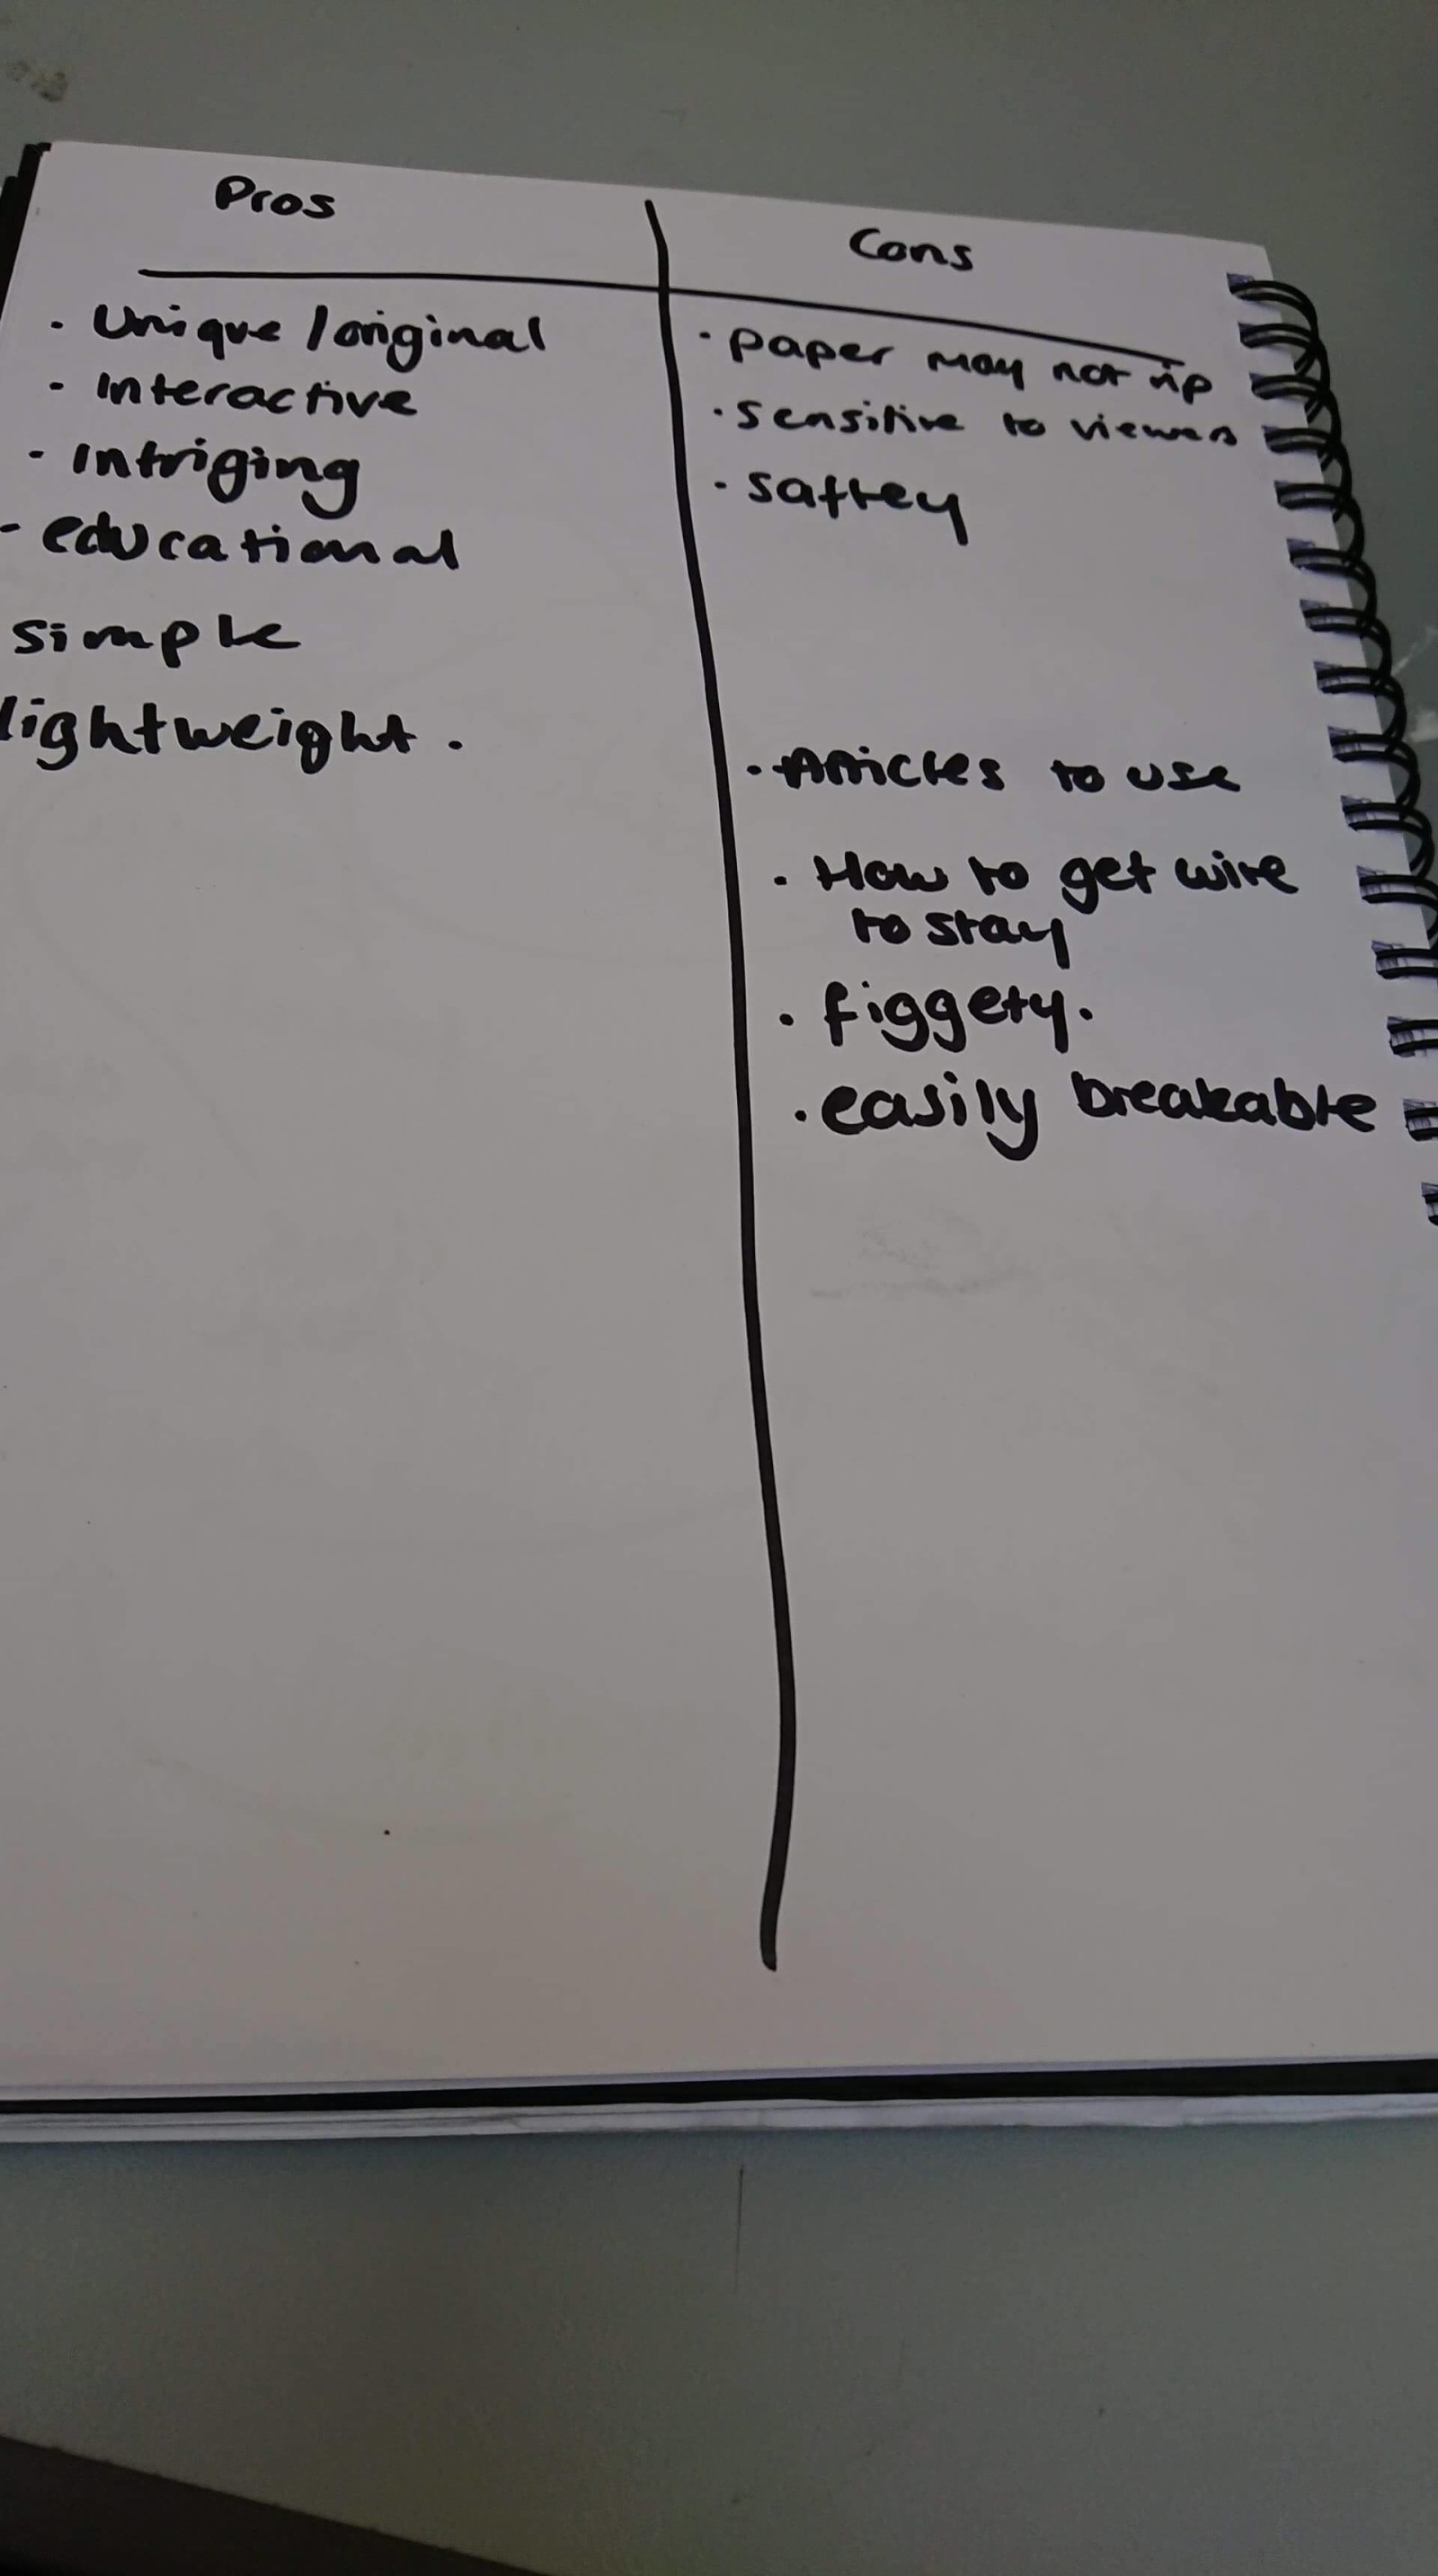 Pros
· Unique / original
- Interactive
- Intriging
- educational
simple
lightweight.
Cons
· paper may not rip
· sensitive to viewers
· saftey
· Articles to use
· How to get wire
to stay
· figgety.
· easily breakable